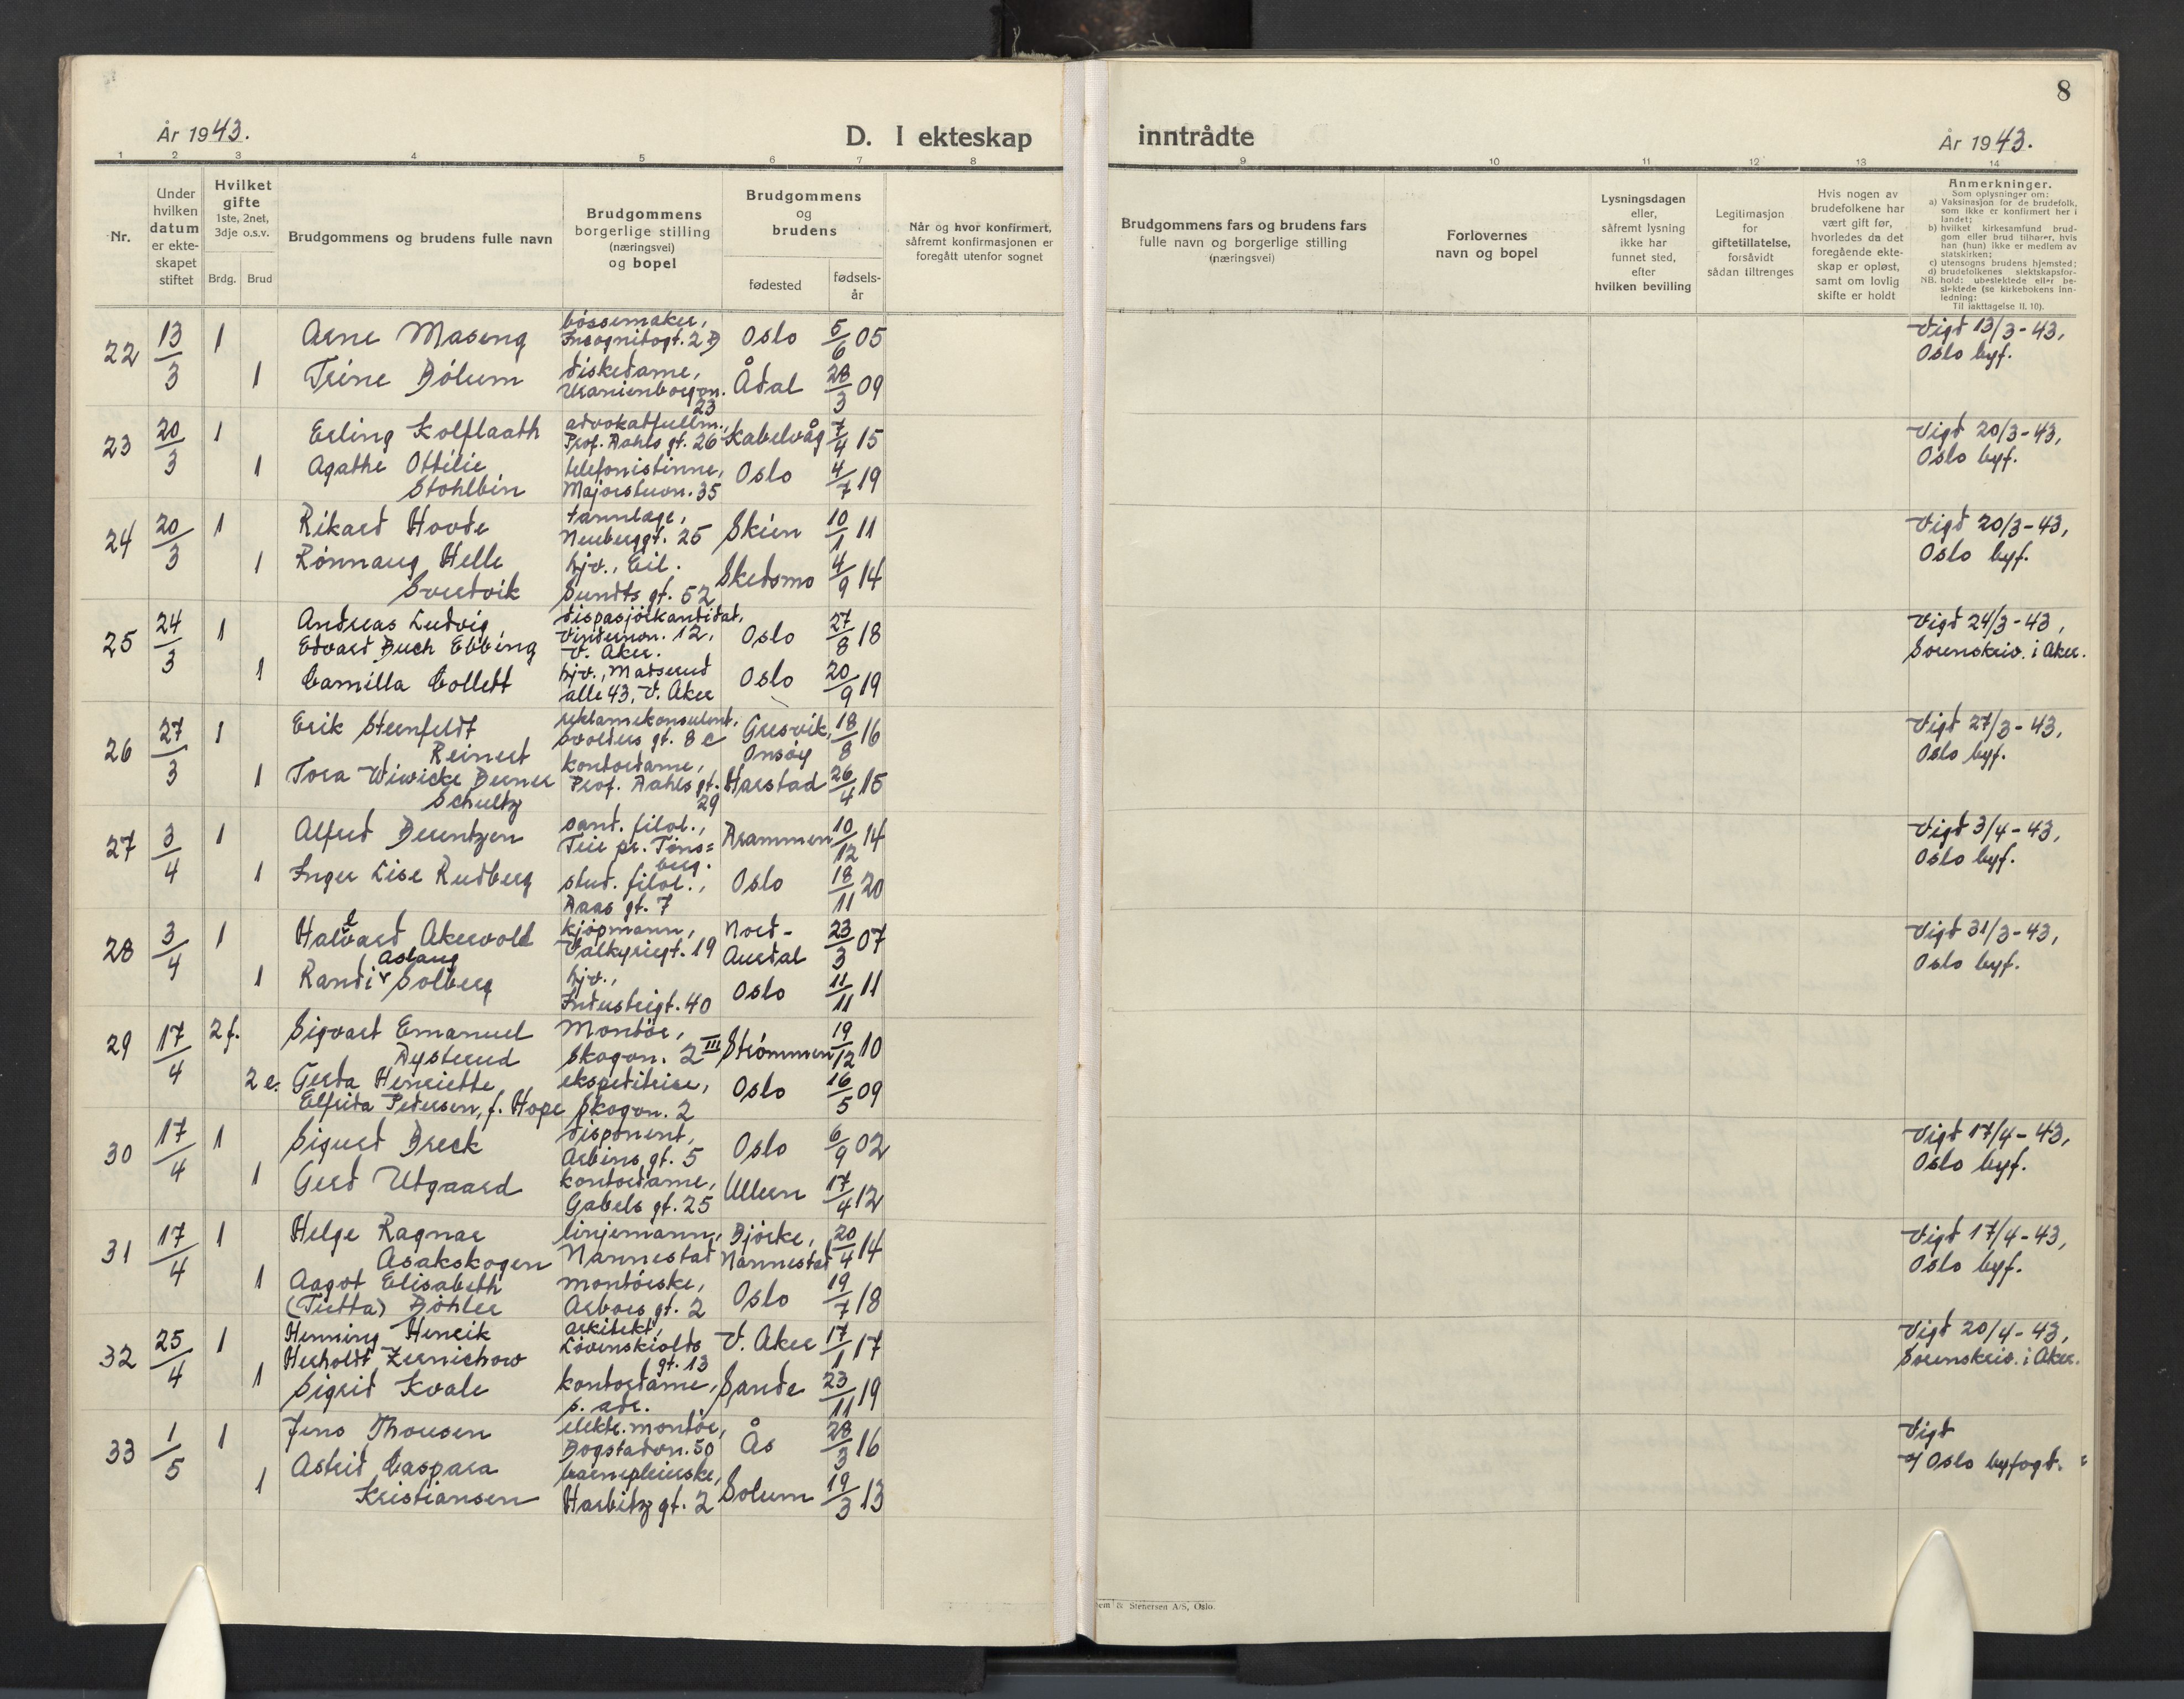 8
År 1943.
D. I ekteskap inntrådte
År 1943.
1 2 3 4 5 6 7 8 9 10 11 12 13 14
Nr.
Under
hvilken
datum
er ekte-
skapet
stiftet
Hvilket
gifte
1ste, 2net,
3dje o.s.v.
Brdg. Brud
Brudgommens og brudens fulle navn
Brudgommens
borgerlige stilling
(næringsvei)
og bopel
Brudgommens
og
brudens
fødested
fødsels-
år
Når og hvor konfirmert,
såfremt konfirmasjonen er
foregått utenfor sognet
Brudgommens fars og brudens fars
fulle navn og borgerlige stilling
(næringsvei)
Forlovernes
navn og bopel
Lysningsdagen
eller,
såfremt lysning
ikke har
funnet sted,
efter
hvilken bevilling
Legitimasjon
for
giftetillatelse,
forsåvidt
sådan tiltrenges
Hvis nogen av
brudefolkene har
vært gift før,
hvorledes da det
foregående ekte-
skap er opløst,
samt om lovlig
skifte er holdt
Anmerkninger.
Som oplysninger om:
a) Vaksinasjon for de brudefolk,
som ikke er konfirmert her i
landet;
b) hvilket kirkesamfund brud-
gom eller brud tilhører, hvis
han (hun) ikke er medlem av
statskirken;
c) utensogns brudens hjemsted;
d) brudefolkenes slektskapsfor-
hold: ubeslektede eller be-
slektede (se kirkebokens inn-
ledning:
NB.
Til iakttagelse II. 10).
22 13/3 1 Arne Maseng bøssemaker, Oslo 5/6 05 Vigd 13/3-43,
Incognitogt. 2 B Oslo byf.
1 Trine Bölum diskedame, Ådal 28/3 09
Uranienborgvn.
23
23 20/3 1 Erling Kolflaath advokatfullm., Kabelvåg 7/4 15 Vigd 20/3-43,
Prof. Dahls gt. 26 Oslo byf.
1 Agathe Ottilie telefonistinne, Oslo 4/7 19
Stohlbin Majorstuvn. 35
24 20/3 1 Rikard Hovde tannlæge, Skien 10/1 11 Vigd 20/3-43,
Neuberggt. 25 Oslo byf.
1 Rönnaug Helle hjv., Eil. Skedsmo 4/9 14
Svartvik Sundts gt. 52
25 24/3 1 Andreas Ludvig dispasjörkandidat, Oslo 27/8 18 Vigd 24/3-43,
Edvard Buch Ebbing Vindernvn. 12, Sorenskriv. i Aker.
V. Aker.
1 Camilla Collett hjv., Madserud Oslo 20/9 19
alle 43, V. Aker
26 27/3 1 Erik Steenfeldt reklamekonsulent, Gresvik, 18/8 16 Vigd 27/3-43,
Reinert Svolders gt. 8 c Onsöy Oslo byf.
1 Tora Wivicke Berner kontordame, Harstad 26/4 15
Schultz Prof. Dahls gt.
29
27 3/4 1 Alfred Berntzen cand. filol., Drammen 10/12 14 Vigd 3/4-43,
Teie pr. Töns= Oslo byf.
berg.
1 Inger Lise Rudberg stud. filol., Oslo 18/11 20
Daas gt. 7
28 3/4 1 Halvard Akervold kjøpmann, Nord- 23/3 07 Vigd 31/3-43,
Valkyriegt. 19 Aurdal Oslo byf.
Aslaug
1 Randi Solberg hjv., Oslo 11/11 11
Industrigt. 40
29 17/4 2 f. Sigvart Emanuel Montör, Strömmen 19/12 10
Dysterud Skogvn. 2 III
2 e. Gerda Henriette ekspeditrise, Oslo 16/5 09
Elfrida Pedersen, f. Hope Skogvn. 2
30 17/4 1 Sigurd Breck disponent, Oslo 6/9 02 Vigd 17/4-43,
Arbins gt. 5 Oslo byf.
1 Gerd Utgaard kontordame, Ullern 17/4 12
Gabels gt. 25
31 17/4 1 Helge Ragnar linjemann, Bjørke, 20/4 14 Vigd 17/4-43,
Asakskogen Nannestad Nannestad Oslo byf.
1 Aagot Elisabeth montörske, Oslo 19/7 18
(Tietta) Böhler Arbos gt. 2
32 25/4 1 Henning Henrik arkitekt, V. Aker 17/1 17 Vigd 20/4-43,
Herholdt Zernichow Lövenskiolds Sorenskriv. i Aker.
gt. 13
1 Sigrid Kvale kontordame, Sande 23/11 19
s. adr.
33 1/5 1 Jens Thousen elektr. montör, Ås 28/3 16 Vigd
Bogstadvn. 50 v/ Oslo byfogd.
1 Astrid Caspara barnepleierske, Solum 19/3 13
Kristiansen Harbitz gt. 2
& Stenersen A/S, Oslo.